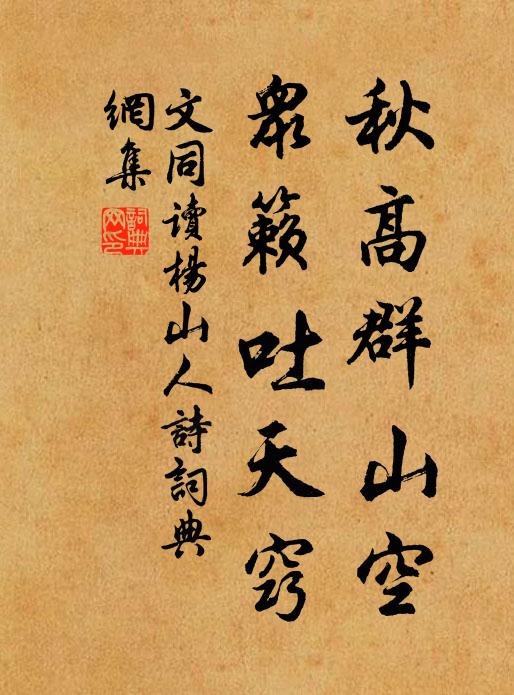 秋高群山空
眾籟吐天窍
文同讀楊山人詩詞典
網集
詞典網印